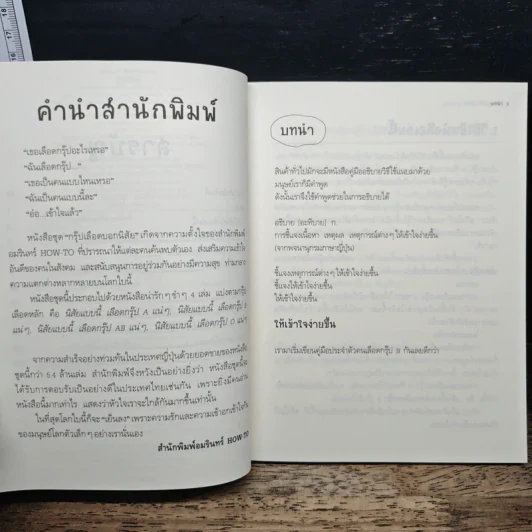 คำนำสำนักพิมพ์
"เธอเลือดกรุ๊ปอะไรเหรอ"
"ฉันเลือดกรุ๊ป..."
"เธอเป็นคนแบบไหนเหรอ"
"ฉันเป็นคนแบบนี้ละ"
"อ๋อ...เข้าใจแล้ว"
หนังสือชุด "กรุ๊ปเลือดบอกนิสัย" เกิดจากความตั้งใจของสำนักพิมพ์
อมรินทร์ HOW-TO ที่ปรารถนาให้แต่ละคนค้นพบตัวเอง ส่งเสริมความเข้าใจ
อันดีของคนในสังคม และสนับสนุนการอยู่ร่วมกันอย่างมีความสุข ท่ามกลาง
ความแตกต่างหลากหลายบนโลกใบนี้
หนังสือชุดนี้ประกอบไปด้วยหนังสือน่ารัก ๆ ขำ ๆ 4 เล่ม แบ่งตามกรุ๊ป
เลือดหลัก คือ นิสัยแบบนี้ เลือดกรุ๊ป A แน่ ๆ, นิสัยแบบนี้ เลือดกรุ๊ป B
แน่ ๆ, นิสัยแบบนี้ เลือดกรุ๊ป AB แน่ ๆ, นิสัยแบบนี้ เลือดกรุ๊ป O แน่ ๆ
จากความสำเร็จอย่างท่วมท้นในประเทศญี่ปุ่นด้วยยอดขายของหนังสือ
ชุดนี้กว่า 5.4 ล้านเล่ม สำนักพิมพ์จึงหวังเป็นอย่างยิ่งว่า หนังสือชุดนี้จะ
ได้รับการตอบรับเป็นอย่างดีในประเทศไทยเช่นกัน เพราะยิ่งมีคนอ่าน
หนังสือนี้มากเท่าไร แสดงว่าหัวใจเราจะใกล้กันมากขึ้นเท่านั้น
ในที่สุดโลกใบนี้ก็จะ "เย็นลง" เพราะความรักและความเข้าอกเข้าใจกัน
ของมนุษย์โลกตัวเล็ก ๆ อย่างเรานั่นเอง
สำนักพิมพ์อมรินทร์ HOW-TO
บทนำ
สินค้าทั่วไปมักจะมีหนังสือคู่มืออธิบายวิธีใช้แนบมาด้วย
มนุษย์เราก็มีคำพูด
ดังนั้นเราจึงใช้คำพูดช่วยในการอธิบายได้
อธิบาย (อะทิบาย) ก.
การชี้แจงเนื้อหา เหตุผล เหตุการณ์ต่าง ๆ ให้เข้าใจง่ายขึ้น
(จากพจนานุกรมภาษาญี่ปุ่น)
ชี้แจงเหตุการณ์ต่าง ๆ ให้เข้าใจง่ายขึ้น
ชี้แจงให้เข้าใจง่ายขึ้น
ให้เข้าใจง่ายขึ้น
ให้เข้าใจง่ายขึ้น
เรามาเริ่มเขียนคู่มือประจำตัวคนเลือดกรุ๊ป B กันเลยดีกว่า